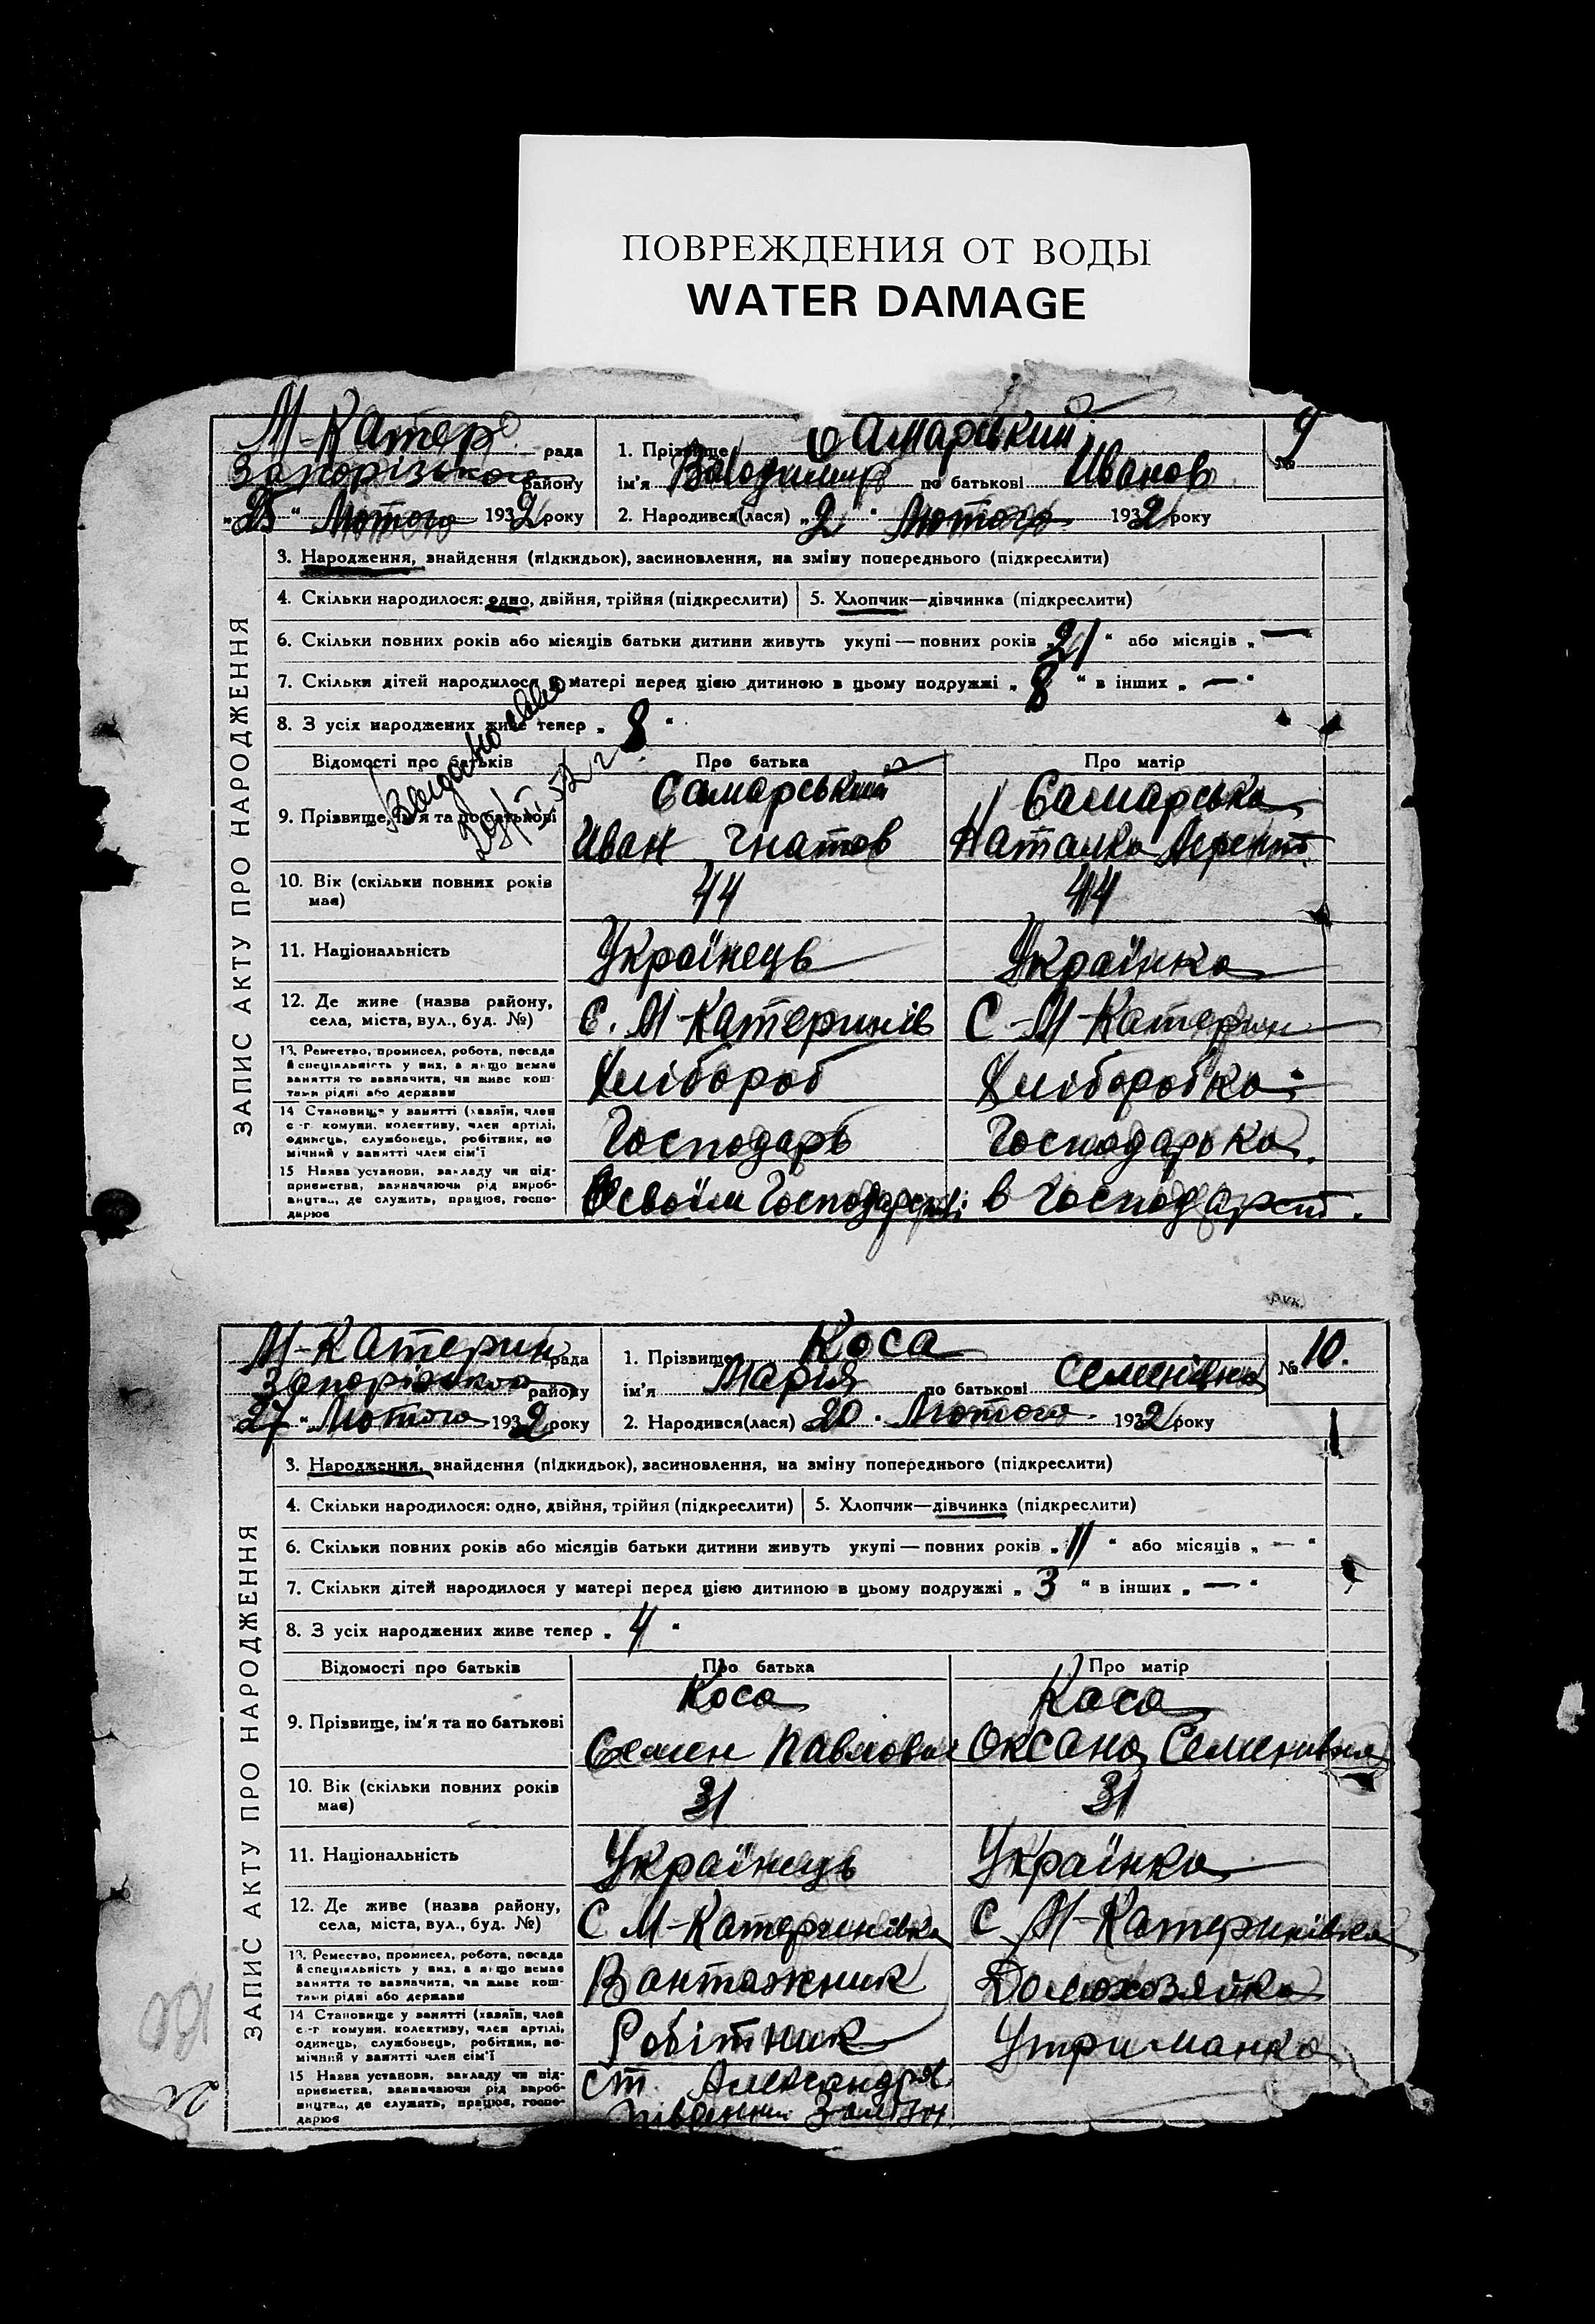 ПОВРЕЖДЕНИЯ ОТ ВОДЫ
WATER DAMAGE
М-Катер рада
Запорізького району
"25" Лютого 1932 року
1. Прізвище Самарський
ім'я Володимир по батькові Иванов
2. Народився(лася) "2" Лютого 1932 року
№ 9
ЗАПИС АКТУ ПРО НАРОДЖЕННЯ
3. Народження, знайдення (підкидьок), засиновлення, на зміну попереднього (підкреслити)
4. Скільки народилося: одно, двійня, трійня (підкреслити) 5. Хлопчик—дівчинка (підкреслити)
6. Скільки повних років або місяців батьки дитини живуть укупі — повних років „21“ або місяців „—
7. Скільки дітей народилося у матері перед цією дитиною в цьому подружжі „8“ в інших „—“
8. З усіх народжених живе тепер „8“
Відомості про батьків Про батька Про матір
9. Прізвище, ім'я та по батькові
Самарський Самарська
Иван Гнатов Наталка
10. Вік (скільки повних років має) 44 44
11. Національність Українець Українка
12. Де живе (назва району, села, міста, вул., буд. №) С. М-Катеринів С-М-Катерин
13. Ремество, промисел, робота, посада й спеціяльність у них, а якщо немає заняття то зазначити, чи живе коштами рідні або держави Хлібороб Хліборобка
14 Становище у занятті (хазяїн, член с.-г комуни, колективу, член артілі, одинець, службовець, робітник, помічний у занятті член сім'ї Господарь Господарька
15 Назва установи, закладу чи підприємства, зазначаючи рід виробництва, де служить, працює, господарює в своїм Господарстві в Господарст.
М-Катерин рада
Запорізького району
27 " Лютого 1932 року
1. Прізвище Коса
ім'я Марія по батькові Семенівна
2. Народився(лася) 20 " Лютого 1932 року
№ 10.
ЗАПИС АКТУ ПРО НАРОДЖЕННЯ
3. Народження, знайдення (підкидьок), засиновлення, на зміну попереднього (підкреслити)
4. Скільки народилося: одно, двійня, трійня (підкреслити) 5. Хлопчик—дівчинка (підкреслити)
6. Скільки повних років або місяців батьки дитини живуть укупі — повних років „11“ або місяців „—“
7. Скільки дітей народилося у матері перед цією дитиною в цьому подружжі „3“ в інших „—“
8. З усіх народжених живе тепер „4“
Відомості про батьків Про батька Про матір
9. Прізвище, ім'я та по батькові
Коса Коса
Семен Павлович Оксана Семенивна
10. Вік (скільки повних років має) 31 31
11. Національність Українець Українка
12. Де живе (назва району, села, міста, вул., буд. №) С М-Катеринівка С М-Катеринівка
13. Ремество, промисел, робота, посада й спеціяльність у них, а якщо немає заняття то зазначити, чи живе коштами рідні або держави Вантажник Домохозяйка
14 Становище у занятті (хазяїн, член с.-г комуни, колективу, член артілі, одинець, службовець, робітник, помічний у занятті член сім'ї Робітник Утриманка
15 Назва установи, закладу чи підприємства, зазначаючи рід виробництва, де служить, працює, господарює ст. Александров.